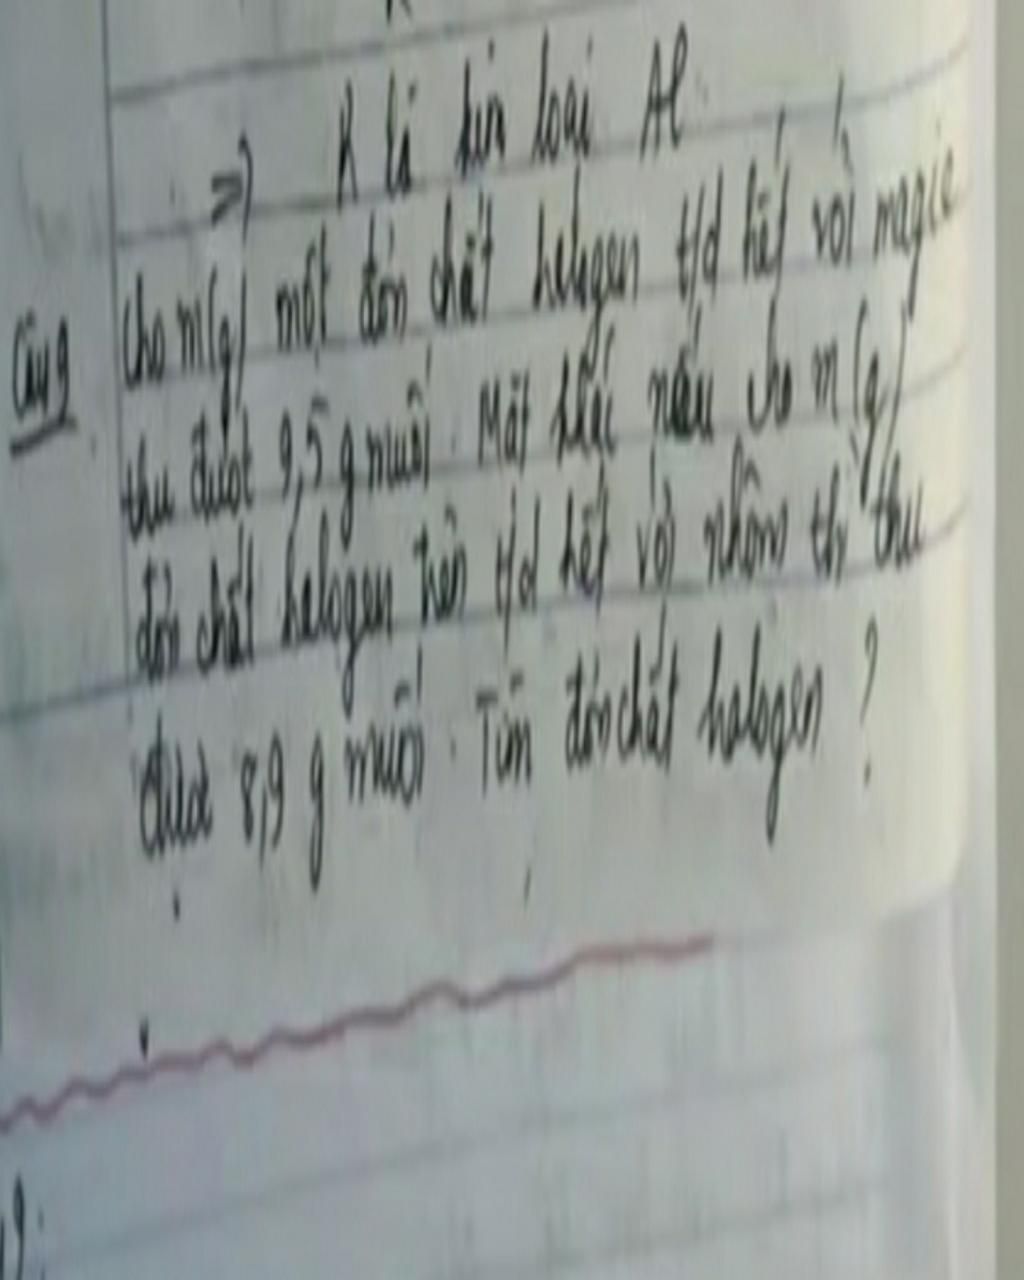 =) R là kim loại Al.
Câu 9 Cho m(g) một đơn chất halogen t/d hết với magie
thu được 9,5 g muối. Mặt khác nếu cho m(g)
đơn chất halogen trên t/d hết với nhôm thì thu
được 8,9 g muối. Tìm đơn chất halogen ?